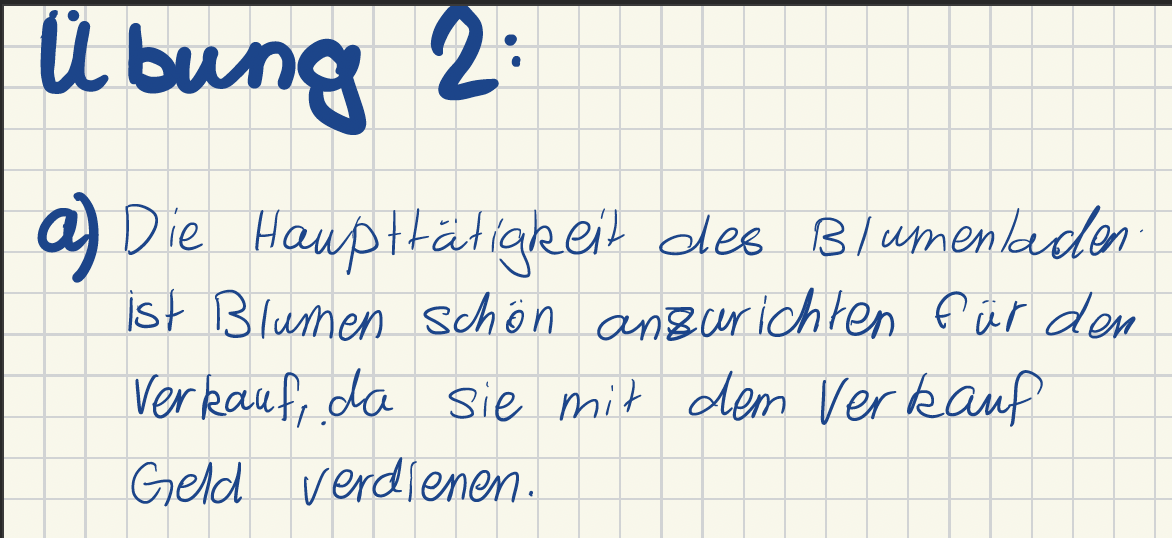 Übung 2:
a) Die Haupttätigkeit des Blumenladen
ist Blumen schön anzurichten für den
Verkauf, da sie mit dem Verkauf
Geld verdienen.